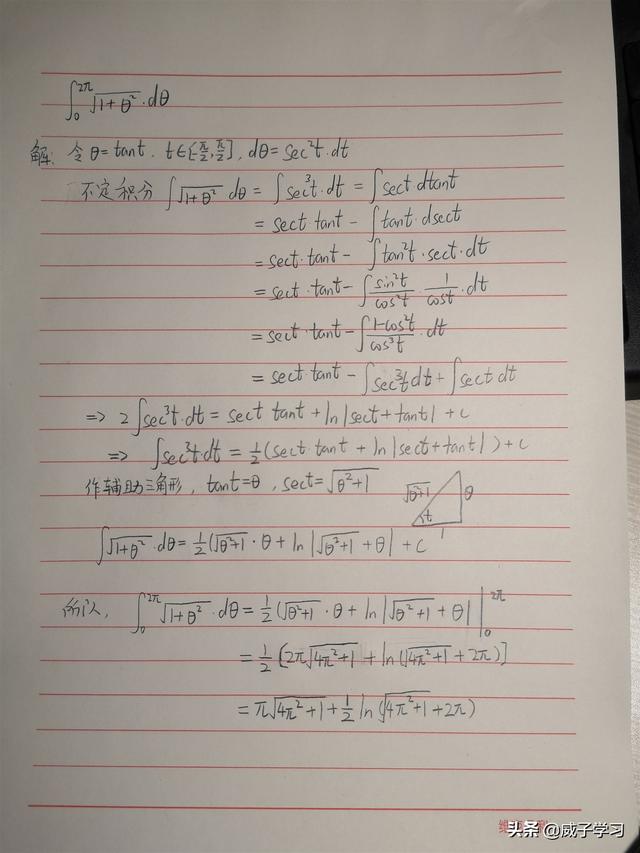 ∫₀^{2π} √(1+θ²) · dθ
解: 令 θ=tant, t∈[-π/2, π/2], dθ=sec²t·dt
不定积分 ∫√(1+θ²) dθ = ∫sec³t·dt = ∫sect dtant
= sect·tant - ∫tant·dsect
= sect·tant - ∫tan²t·sect·dt
= sect·tant - ∫(sin²t/cos²t)·(1/cost)·dt
= sect·tant - ∫((1-cos²t)/cos³t)·dt
= sect tant - ∫sec³t dt + ∫sect dt
=> 2∫sec³t·dt = sect tant + ln|sect+tant| + c
=> ∫sec³t dt = ½(sect·tant + ln|sect+tant|) + c
作辅助三角形, tant=θ, sect=√(θ²+1)
√(θ²+1) θ t 1
∫√(1+θ²)·dθ = ½(√(θ²+1)·θ + ln|√(θ²+1)+θ| + C
所以, ∫₀^{2π} √(1+θ²)·dθ = ½(√(θ²+1)·θ + ln|√(θ²+1)+θ| |₀^{2π}
= ½[2π√(4π²+1) + ln(√(4π²+1)+2π)]
= π√(4π²+1) + ½ ln(√(4π²+1)+2π)
头条 @威子学习